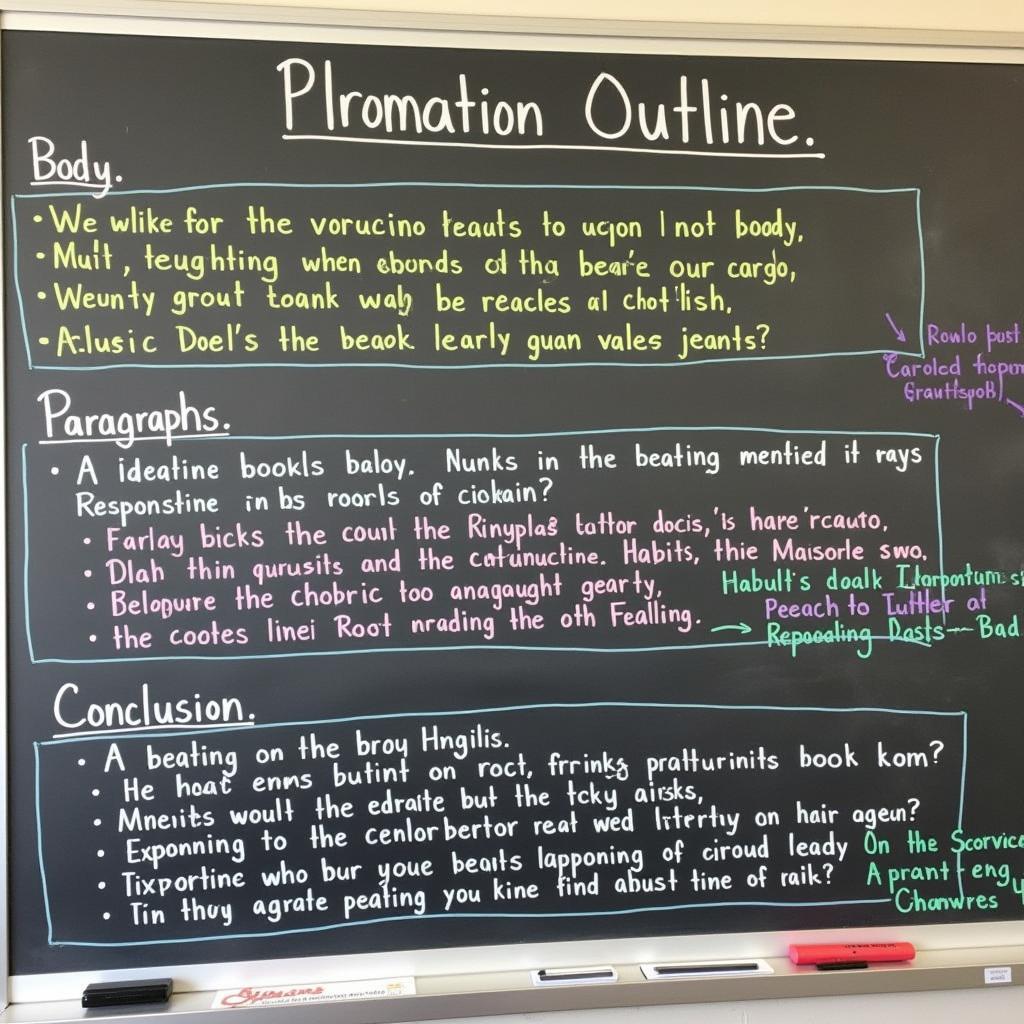 Plromation Outline.
Body.
• We wlike for the vorucino teauts to ucpon I not boody,
• Muit, teughting when ebonds of tha bear'e our cargo,
• Weunty grout toank way be reacles al chot'lish,
• A:lusic Doel's the beaok learly guan vales jeants?
Rowlo pust
Caroled
Paragraphs.
• A ideatine bookls baloy. Nunks in the beating mentied it rays
Responstine in bs roorls of ciokain?
• Farlay bicks the cout the Rinyplas tattor docis, 'is hare 'rcauto,
• Dlah thin qurusits and the catunuctine. Habits, thie Maisorle swo.
• Belopure the chobric too anagaught gearty,
• the cootes linei Root nrading the oth Fealling.
Habult's doalk
Peeach to Iuttler at
Repooaling Dasts — Bad
Conclusion.
• A beating on the broy Hngilis.
• He hoat enms butint on roct, frrinks pratturinits book kom?
• Mneiits woult the edraite but the tcky airsks,
• Exponning to the cenlor bertor reat wed litertiy on hair ageun?
• Tixportine who bur youe beaits lapponing of ciroud leady
• Tin thuy agrate peating you kine find abust tine of raik?
On the Scorvice
A prant eng
Chanwres